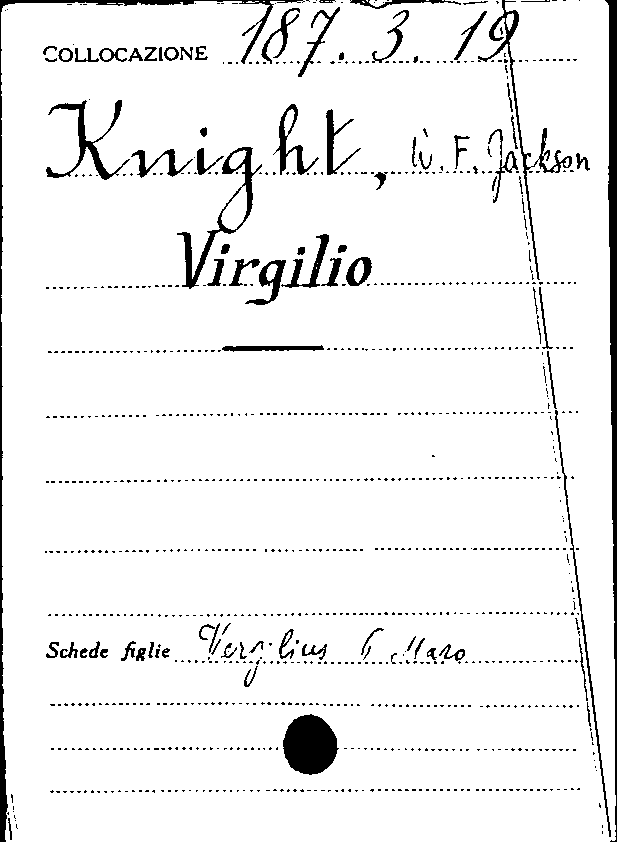 COLLOCAZIONE 187. 3. 19
Knight, W. F. Jackson
Virgilio
Schede figlie Vergilius Maro